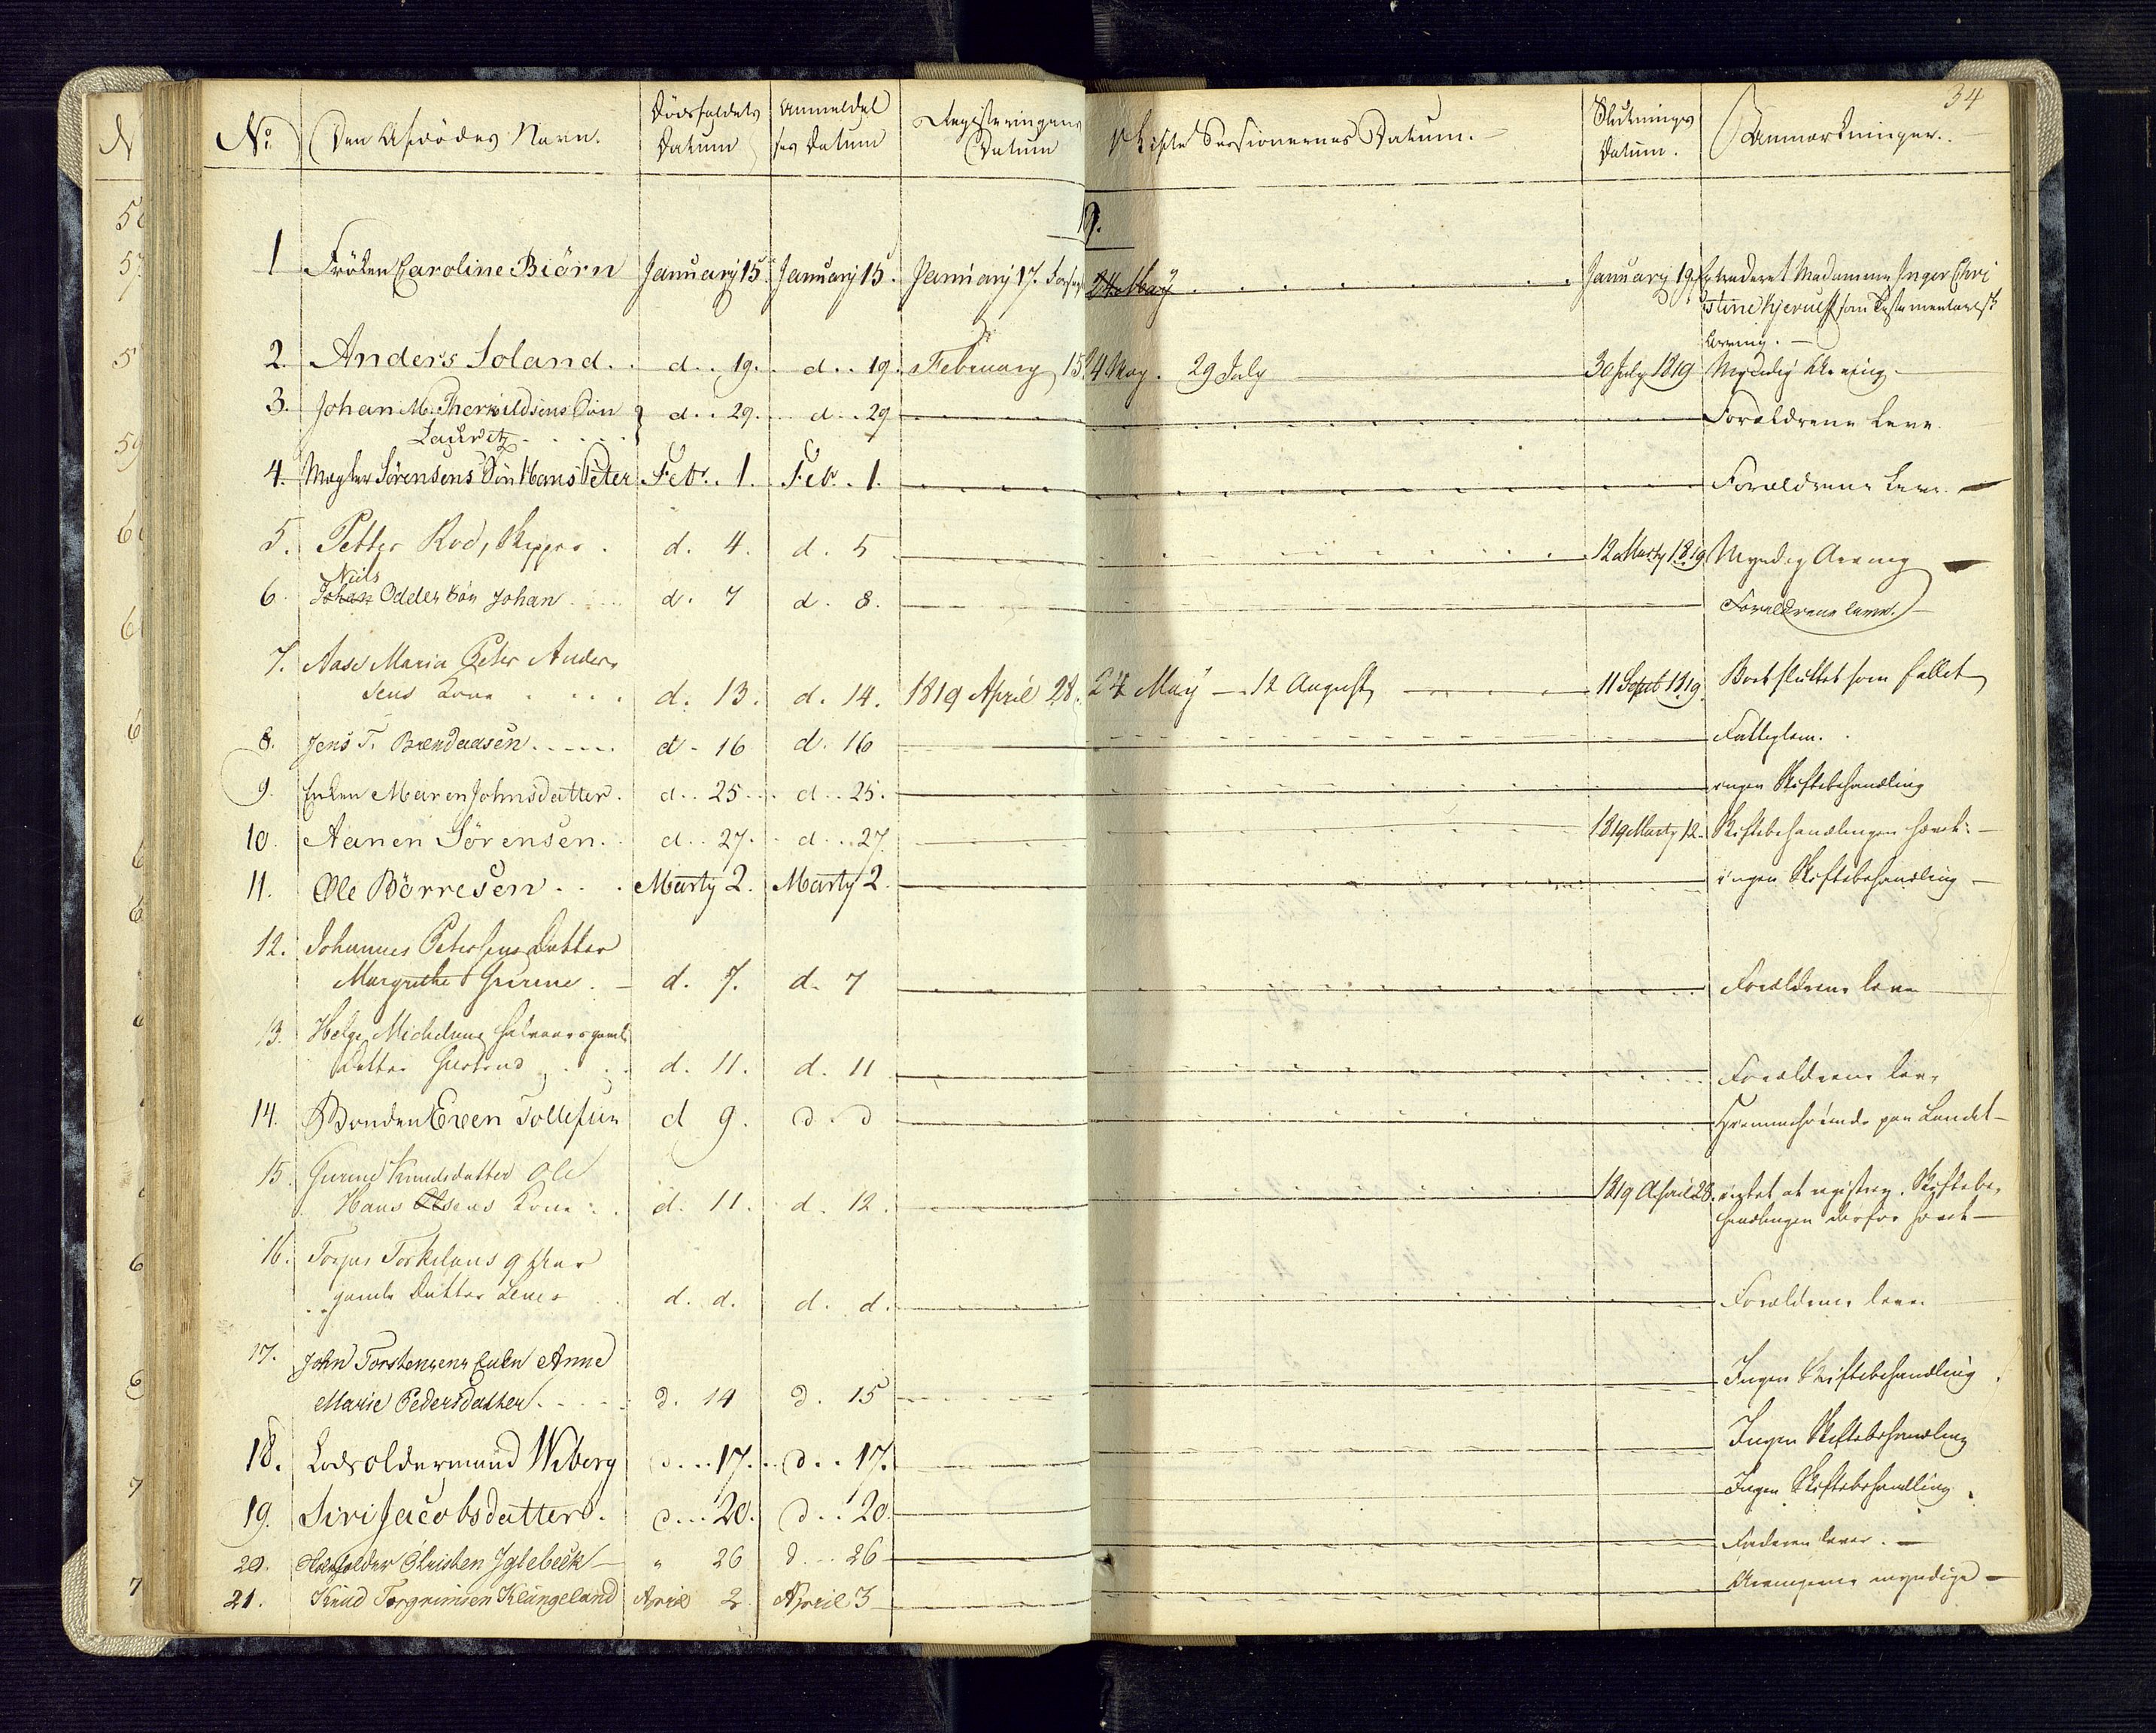 34
No Den Afdödes Navn. Dödsfaldets Datum Anmeldelses Datum Registeringens Datum Skifte Sessionernes Datum. Slutnings Datum. Anmærkninger.
19.
1 Fröken Caroline Biörn January 15. January 15. January 17. January 19. Extraderet Madamme Inger Chri
stine Kjerulf som Testamentarisk
Arving.
2. Anders Soland d. 19. d. 19. February 15. 24 May. 29 July 30 July 1819 Myndig Arving.
3. Johan M. Therkildsens Sön d. 29. d. 29 Forældrene leve.
Lauritz
4. Mægler Sörensens Sön Hans Peter Febr. 1. Febr. 1. Forældrene leve.
5. Petter Rod, Skipper d. 4. d. 5 12 Marty 1819 Myndig Arving
Niels
6. Johan Oddes Sön Johan d. 7 d. 8. Forældrene leve.
7. Aase Maria Peter Ander
sens Kone d. 13. d. 14. 1819 April 28. 24 May - 12 August 11 Septb 1819. Boet sluttet som fallet
8. Jens T. Brendaasen d. 16 d. 16 Fattiglem.
9. Enken Maren Johnsdatter. d. 25. d. 25. ingen Skiftebehandling
10. Aanen Sörensen. d. 27. d. 27. 1819 Marty 12. Skiftebehandlingen hævet.
11. Ole Börresen Marty 2. Marty 2. ingen Skiftebehandling
12. Johannes Petersens Datter
Margrethe Gurine d. 7. d. 7 Forældrene leve
13. Helge Michelsens halvaarsgamle
Datter Giertrud d. 11. d. 11 Forældrene leve
14. Bonden Even Tollefsen d 9. d. d Hjemmehörende paa Landet
15. Gurine Knudsdatter Ole
Hans Olsens Kone d. 11. d. 12. 1819 April 28. intet at registrere. Skiftebe
handlingen derfor hævet
16. Torjus Torkelsens 9 Aar
gamle Datter Lene d. d. d. d. Forældrene leve
17. John Torstensens Enke Anne
Marie Pedersdatter d. 14 d. 15 Ingen Skiftebehandling
18. Lodsoldermand Wiborg d. 17. d. 17. Ingen Skiftebehandling
19. Siri Jacobsdatter. d. 20. d. 20. Ingen Skiftebehandling
20. Christen Iglebeck " 26 d. 26 Faderen lever.
21. Knud Torgrimsen Klüngeland April 2 April 3 Arvingerne myndige